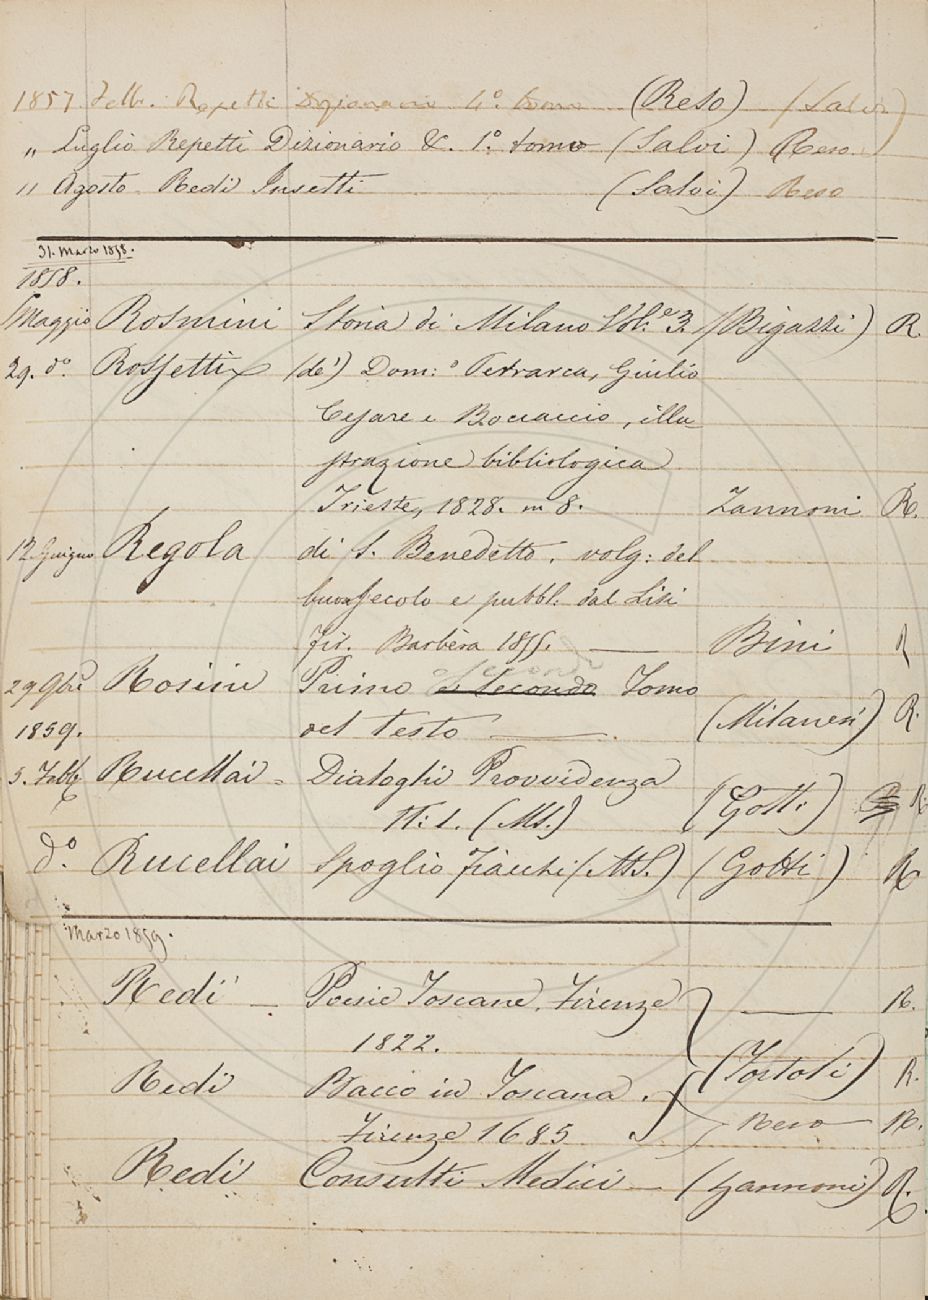 1857 Febb. Repetti Dizionario 4.° tomo (Reso) (Salvi)
„ Luglio Repetti Dizionario &. 1.° tomo (Salvi) Reso
" Agosto Redi Insetti (Salvi) Reso
31. Marzo 1858.
1858.
Maggio Rosmini Storia di Milano Vol.e 3. (Bigazzi) R.
29. d.° Rossetti (de') Dom:° Petrarca, Giulio
Cesare e Boccaccio, illu-
strazione bibliologica
Trieste, 1828. in 8. Zannoni R.
12 Giugno Regola di S. Benedetto, volg: del
buon secolo e pubbl. dal Lisi
Fir. Barbèra 1855. — Bini R
29 9bre Rosini Primo e Secondo Secondo Tomo
1859. del testo — (Milanesi) R.
5. Febb. Rucellai - Dialoghi Provvidenza
(MS.) (Gotti) R R
d.° Rucellai Spoglio Fiacchi (MS.) (Gotti) R
Marzo 1859.
Redi — Poesie Toscane, Firenze — R.
1822.
(Tortoli) R.
Redi Bacco in Toscana.
Firenze 1685 Reso — R.
Redi Consulti Medici — (Zannoni) R.